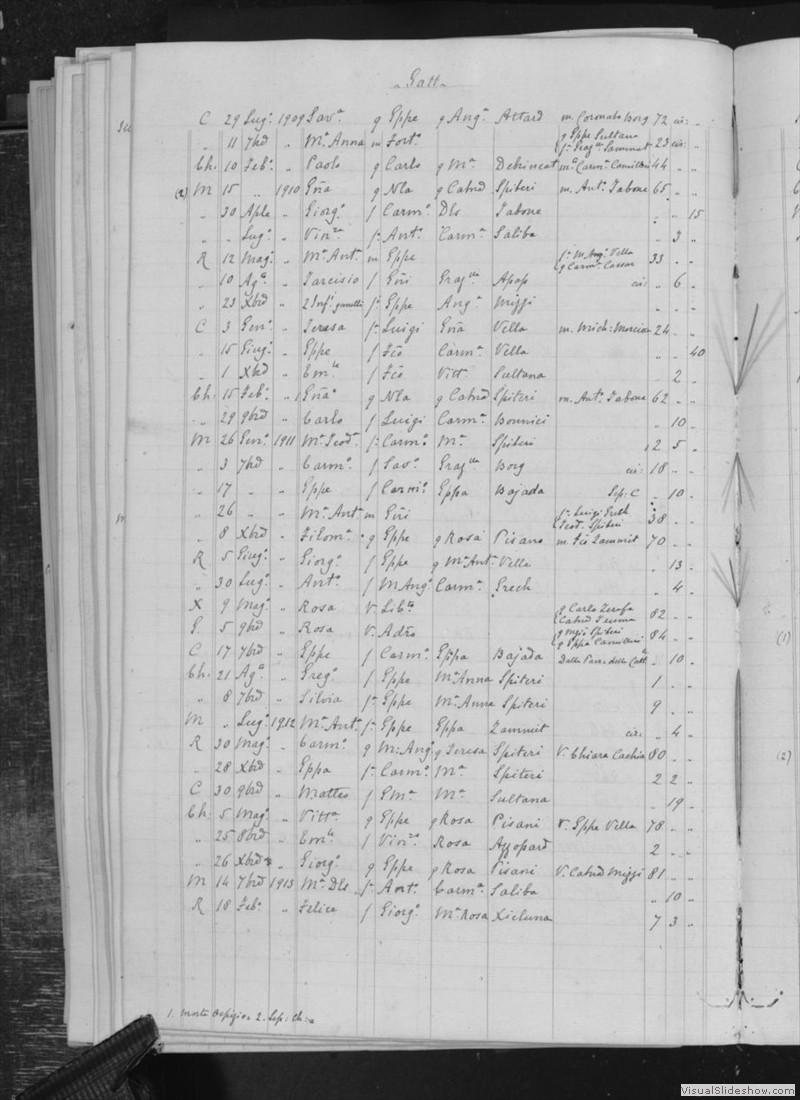 „ Gatt „
C 29 Lugº 1909 Savª q Eppe q Angª Attard m. Coronato Borg 72 cis: „
„ 11 7brd „ Mª Anna m Fortº q Eppe Sultana fª Grazlla Sammut 23 cis: „
Ch. 10 Febº „ Paolo q Carlo q Mª Debincat mº Carmª Camilleri 44 „ „
(2) M 15 „ 1910 Gña q Nla q Catnd Spiteri m. Antº Tabone 65 „ „
„ 30 Aple „ Giorgº f Carmº Dls Tabone „ „ 15
„ „ Lugº „ Vinza fª Antº Carmª Saliba „ 3 „
R 12 Magº „ Mª Antª m Eppe fª M Angº Villa q Carmª Cassar 33 „ „
„ 10 Agº „ Tarcisio f Gñi Grazlla Apap cis: „ 6 „
„ 23 Xbrd „ 2 Infi gemelli fª Eppe Angª Mizzi „ „ „
C 3 Genº „ Teresa fª Luigi Gña Vella m. Mich: Mercieca 24 „ „
„ 15 Giugº „ Eppe f Fco Carmª Vella „ „ 40
„ 1 Xbrd „ Emle f Fco Vittª Sultana „ 2 „
Ch. 15 Febº „ Gñaª q Nla q Catnd Spiteri m. Antº Tabone 62 „ „
„ 29 9brd „ Carlo f Luigi Carmª Bonnici „ 10 „
M 26 Genº 1911 Mª Teodª fª Carmº Mª Spiteri 2 5 „
„ 3 7brd „ Carmº f Savº Grazlla Borg cis: 18 „ „
„ 17 „ „ Eppe f Carmº Eppa Bajada Sep: C „ 10 „
„ 26 „ „ Mª Antª m Gñi fª Luigi Grech Teodª Spiteri 38 „ „
„ 8 Xbrd „ Filomª q Eppe q Rosa Pisani m. Fco Zammit 70 „ „
R 5 Giugº „ Giorgº f Eppe q Mª Antª Vella „ 13 „
„ 30 Lugº „ Antº f M Angº Carmª Grech „ 4 „
X 9 Magº „ Rosa V. Libto q Carlo Zerafa Catnd Teuma 82 „ „
G. 5 9brd „ Rosa V. Adrº q Ngio Spiteri q Eppa Camilleri 84 „ „
C 17 7brd „ Eppe f Carmº Eppa Bajada Dalla Parr. della Cattª „ 10 „
Ch. 21 Agº „ Gregº f Eppe Mª Anna Spiteri 1 „ „
„ 8 7brd „ Silvia fª Eppe Mª Anna Spiteri 9 „ „
M „ Lugº 1912 Mª Antª fª Eppe Eppa Zammit cis: „ 4 „
R 30 Magº „ Carmº q M: Angº q Teresa Spiteri V. Chiara Cachia 80 „ „
„ 28 Xbrd „ Eppa fª Carmº Mª Spiteri 2 2 „
C 30 9brd „ Matteo f Emª Mª Sultana „ 19 „
Ch. 5 Magº „ Vittª q Eppe q Rosa Pisani V. Eppe Villa 78 „ „
„ 25 8brd „ Emle f Vinzº Rosa Azzopard 2 „ „
„ 26 Xbrd „ Giorgº q Eppe q Rosa Pisani V. Catnd Mizzi 81 „ „
M 14 7brd 1913 Mª Dls fª Antº Carmª Saliba „ 10 „
R 18 Febº „ Felice f Giorgº Mª Rosa Xicluna 7 3 „
1. morto Ospizio 2. Sep: Ch:
(1)
(2)
VisualSlideshow.com